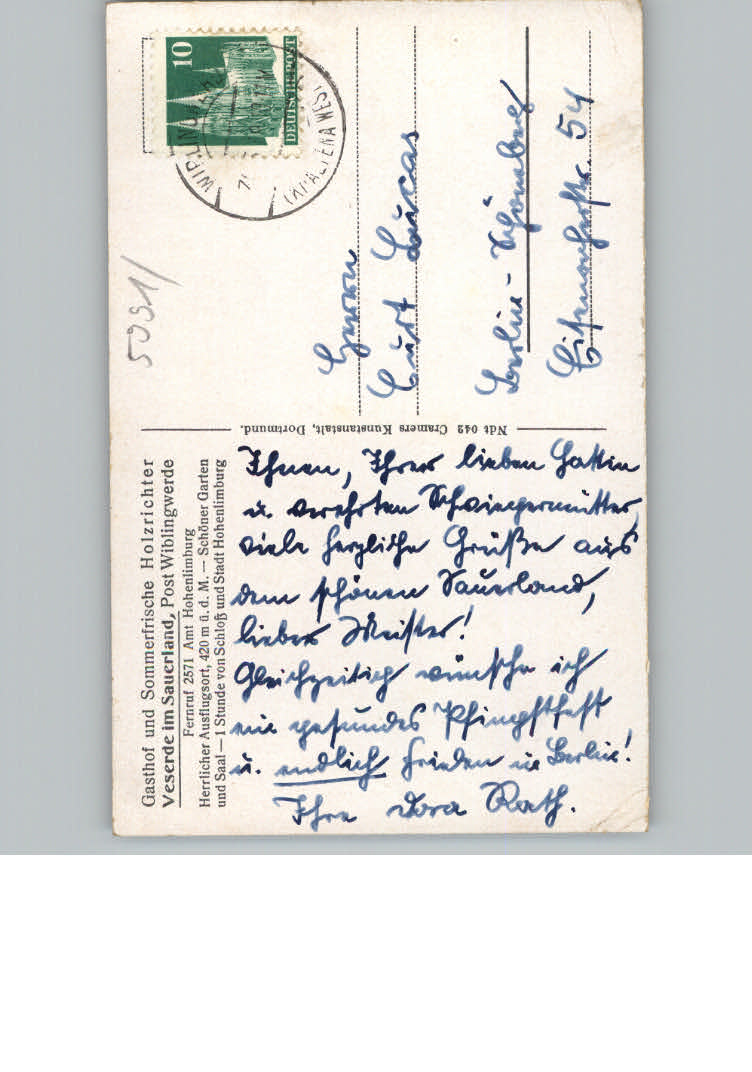 Gasthof und Sommerfrische Holzrichter
Veserde im Sauerland, Post Wiblingwerde
Fernruf 2571 Amt Hohenlimburg
Herrlicher Ausflugsort, 420 m ü. d. M. — Schöner Garten
und Saal — 1 Stunde von Schloß und Stadt Hohenlimburg
Ihnen, Ihrer lieben Gattin
u. verehrten Schwiegermutter
viele herzliche Grüße aus
dem schönen Sauerland,
lieber Meister!
Gleichzeitig wünsche ich
ein gesundes Pfingstfest
u. endlich Frieden in Berlin!
Ihre Dora Rath.
Ndt 049 Cramers Kunstanstalt, Dortmund.
10
DEUTSCHE POST
(KR. ALTENA WESTF
5991/
Herrn
Curt Lucas
Berlin-Schöneberg
Eisenacherstr. 54